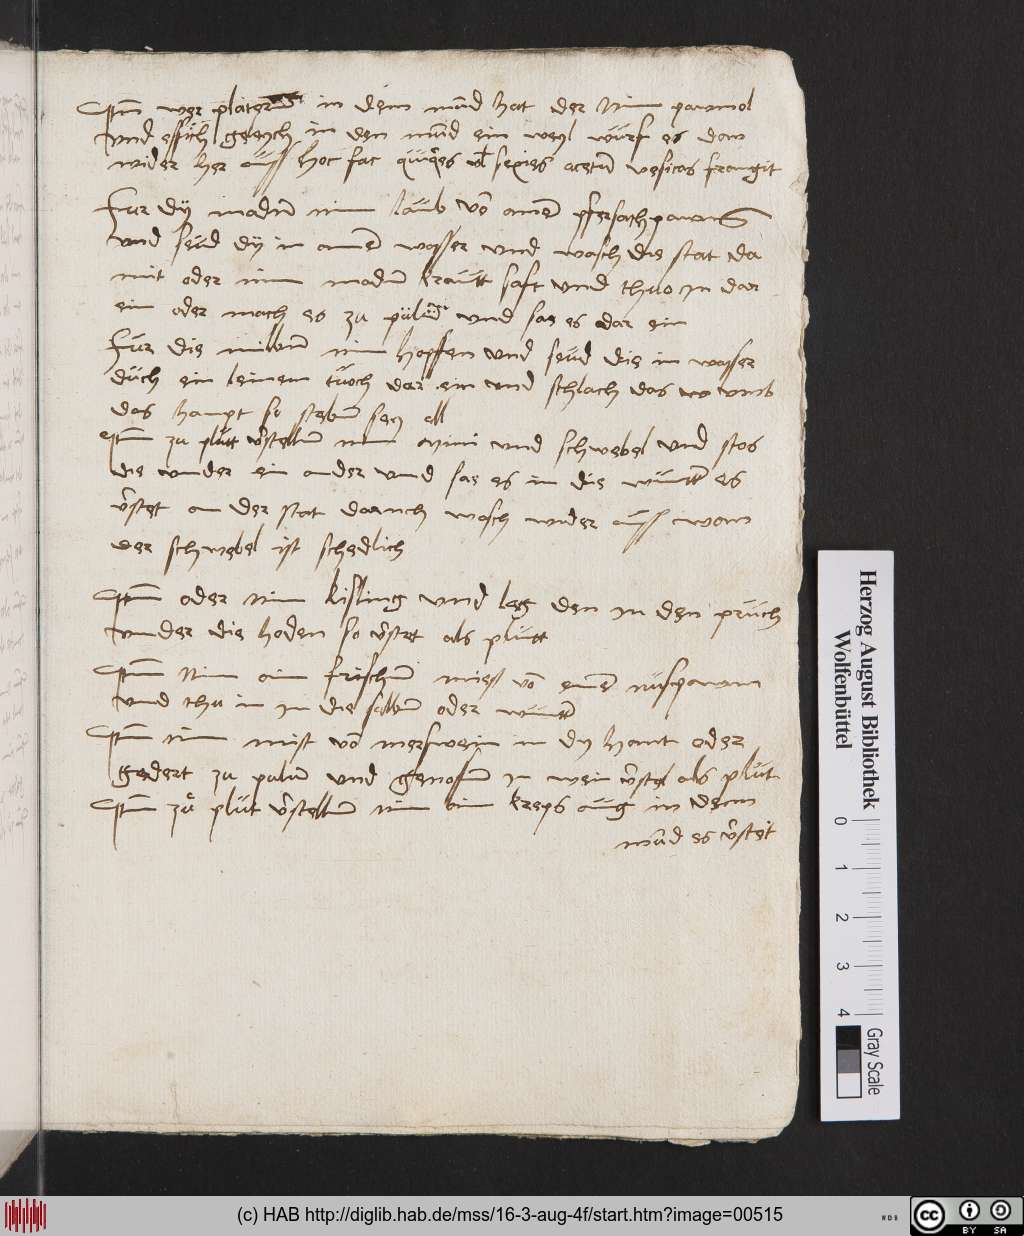 Item wer platern in dem mund hat der Nim paumol
vnd essich gleych in den mund ein weyl wurf es dan
wider her auss hoc fac quinquies vel sexies acetum vesicas frangit
Fur dy madn nim laub vo ainem pfersachpaum
vnd seud dy in ainem wasser vnd wasch die stat da
mit oder nim madn krautt saft vnd thuo in dar
ein oder mach es zu puluer vnd sae es dar ein
Fur die milbn nim hopffen vnd seud die in wasser
duch ein leinem tuoch dar ein vnd schlach das vmb
das haupt so sterbn sey all
Item zu plutt verstellen nim mini vnd schwebel vnd stos
die vnder ein ander vnd sae es in die wundn es
verstet an der stat darnch wasch wider auss wan
der schwebel ist schedlich
Item oder Nim kisling vnd leg den in den pruch
vnder die hoden so verstet als plutt
Item Nim ain frischn miess von einem nuspaum
vnd thu in in die salbn oder wundn
Item nim mist von merswein in dy hant oder
gedert zu puluer vnd genossn in wein verstel als plut
Item zu plut verstellen nim ein kreps aug in dem
mund es verstet
Herzog August Bibliothek
Wolfenbüttel
0 1 2 3 4
Gray Scale
(c) HAB http://diglib.hab.de/mss/16-3-aug-4f/start.htm?image=00515
WDB
cc BY SA